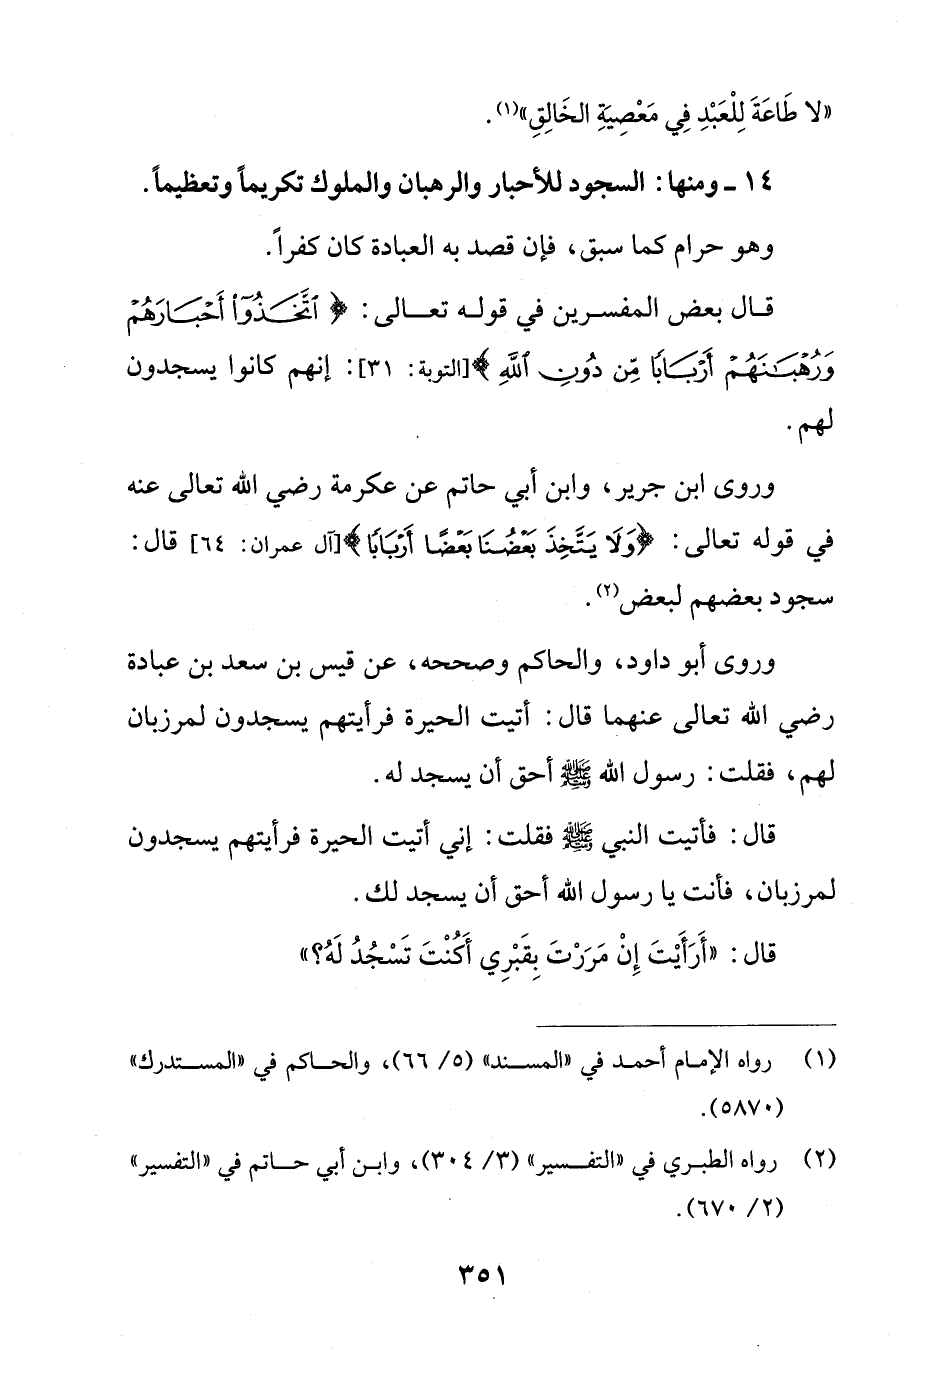 «لا طَاعَةَ لِلْعَبْدِ فِي مَعْصِيَةِ الخَالِقِ»(١).
١٤ ـ ومنها: السجود للأحبار والرهبان والملوك تكريماً وتعظيماً.
وهو حرام كما سبق، فإن قصد به العبادة كان كفراً.
قال بعض المفسرين في قوله تعالى: ﴿ٱتَّخَذُوٓا۟ أَحْبَارَهُمْ
وَرُهْبَـٰنَهُمْ أَرْبَابًا مِّن دُونِ ٱللَّهِ﴾[التوبة: ٣١]: إنهم كانوا يسجدون
لهم.
وروى ابن جرير، وابن أبي حاتم عن عكرمة رضي الله تعالى عنه
في قوله تعالى: ﴿وَلَا يَتَّخِذَ بَعْضُنَا بَعْضًا أَرْبَابًا﴾[آل عمران: ٦٤] قال:
سجود بعضهم لبعض(٢).
وروى أبو داود، والحاكم وصححه، عن قيس بن سعد بن عبادة
رضي الله تعالى عنهما قال: أتيت الحيرة فرأيتهم يسجدون لمرزبان
لهم، فقلت: رسول الله ﷺ أحق أن يسجد له.
قال: فأتيت النبي ﷺ فقلت: إني أتيت الحيرة فرأيتهم يسجدون
لمرزبان، فأنت يا رسول الله أحق أن يسجد لك.
قال: «أَرَأَيْتَ إِنْ مَرَرْتَ بِقَبْرِي أَكُنْتَ تَسْجُدُ لَهُ؟»
(١) رواه الإمام أحمد في «المسند» (٥/ ٦٦)، والحاكم في «المستدرك»
(٥٨٧٠).
(٢) رواه الطبري في «التفسير» (٣/ ٣٠٤)، وابن أبي حاتم في «التفسير»
(٢/ ٦٧٠).
٣٥١